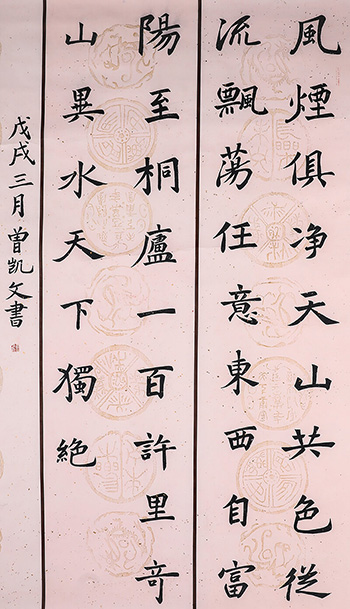 風煙俱净天山共色從
流飄蕩任意東西自富
陽至桐廬一百許里奇
山異水天下獨絶
戊戌三月曾凱文書